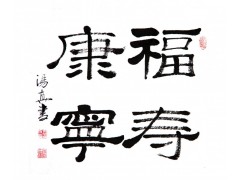 福寿
康寧
鴻真書